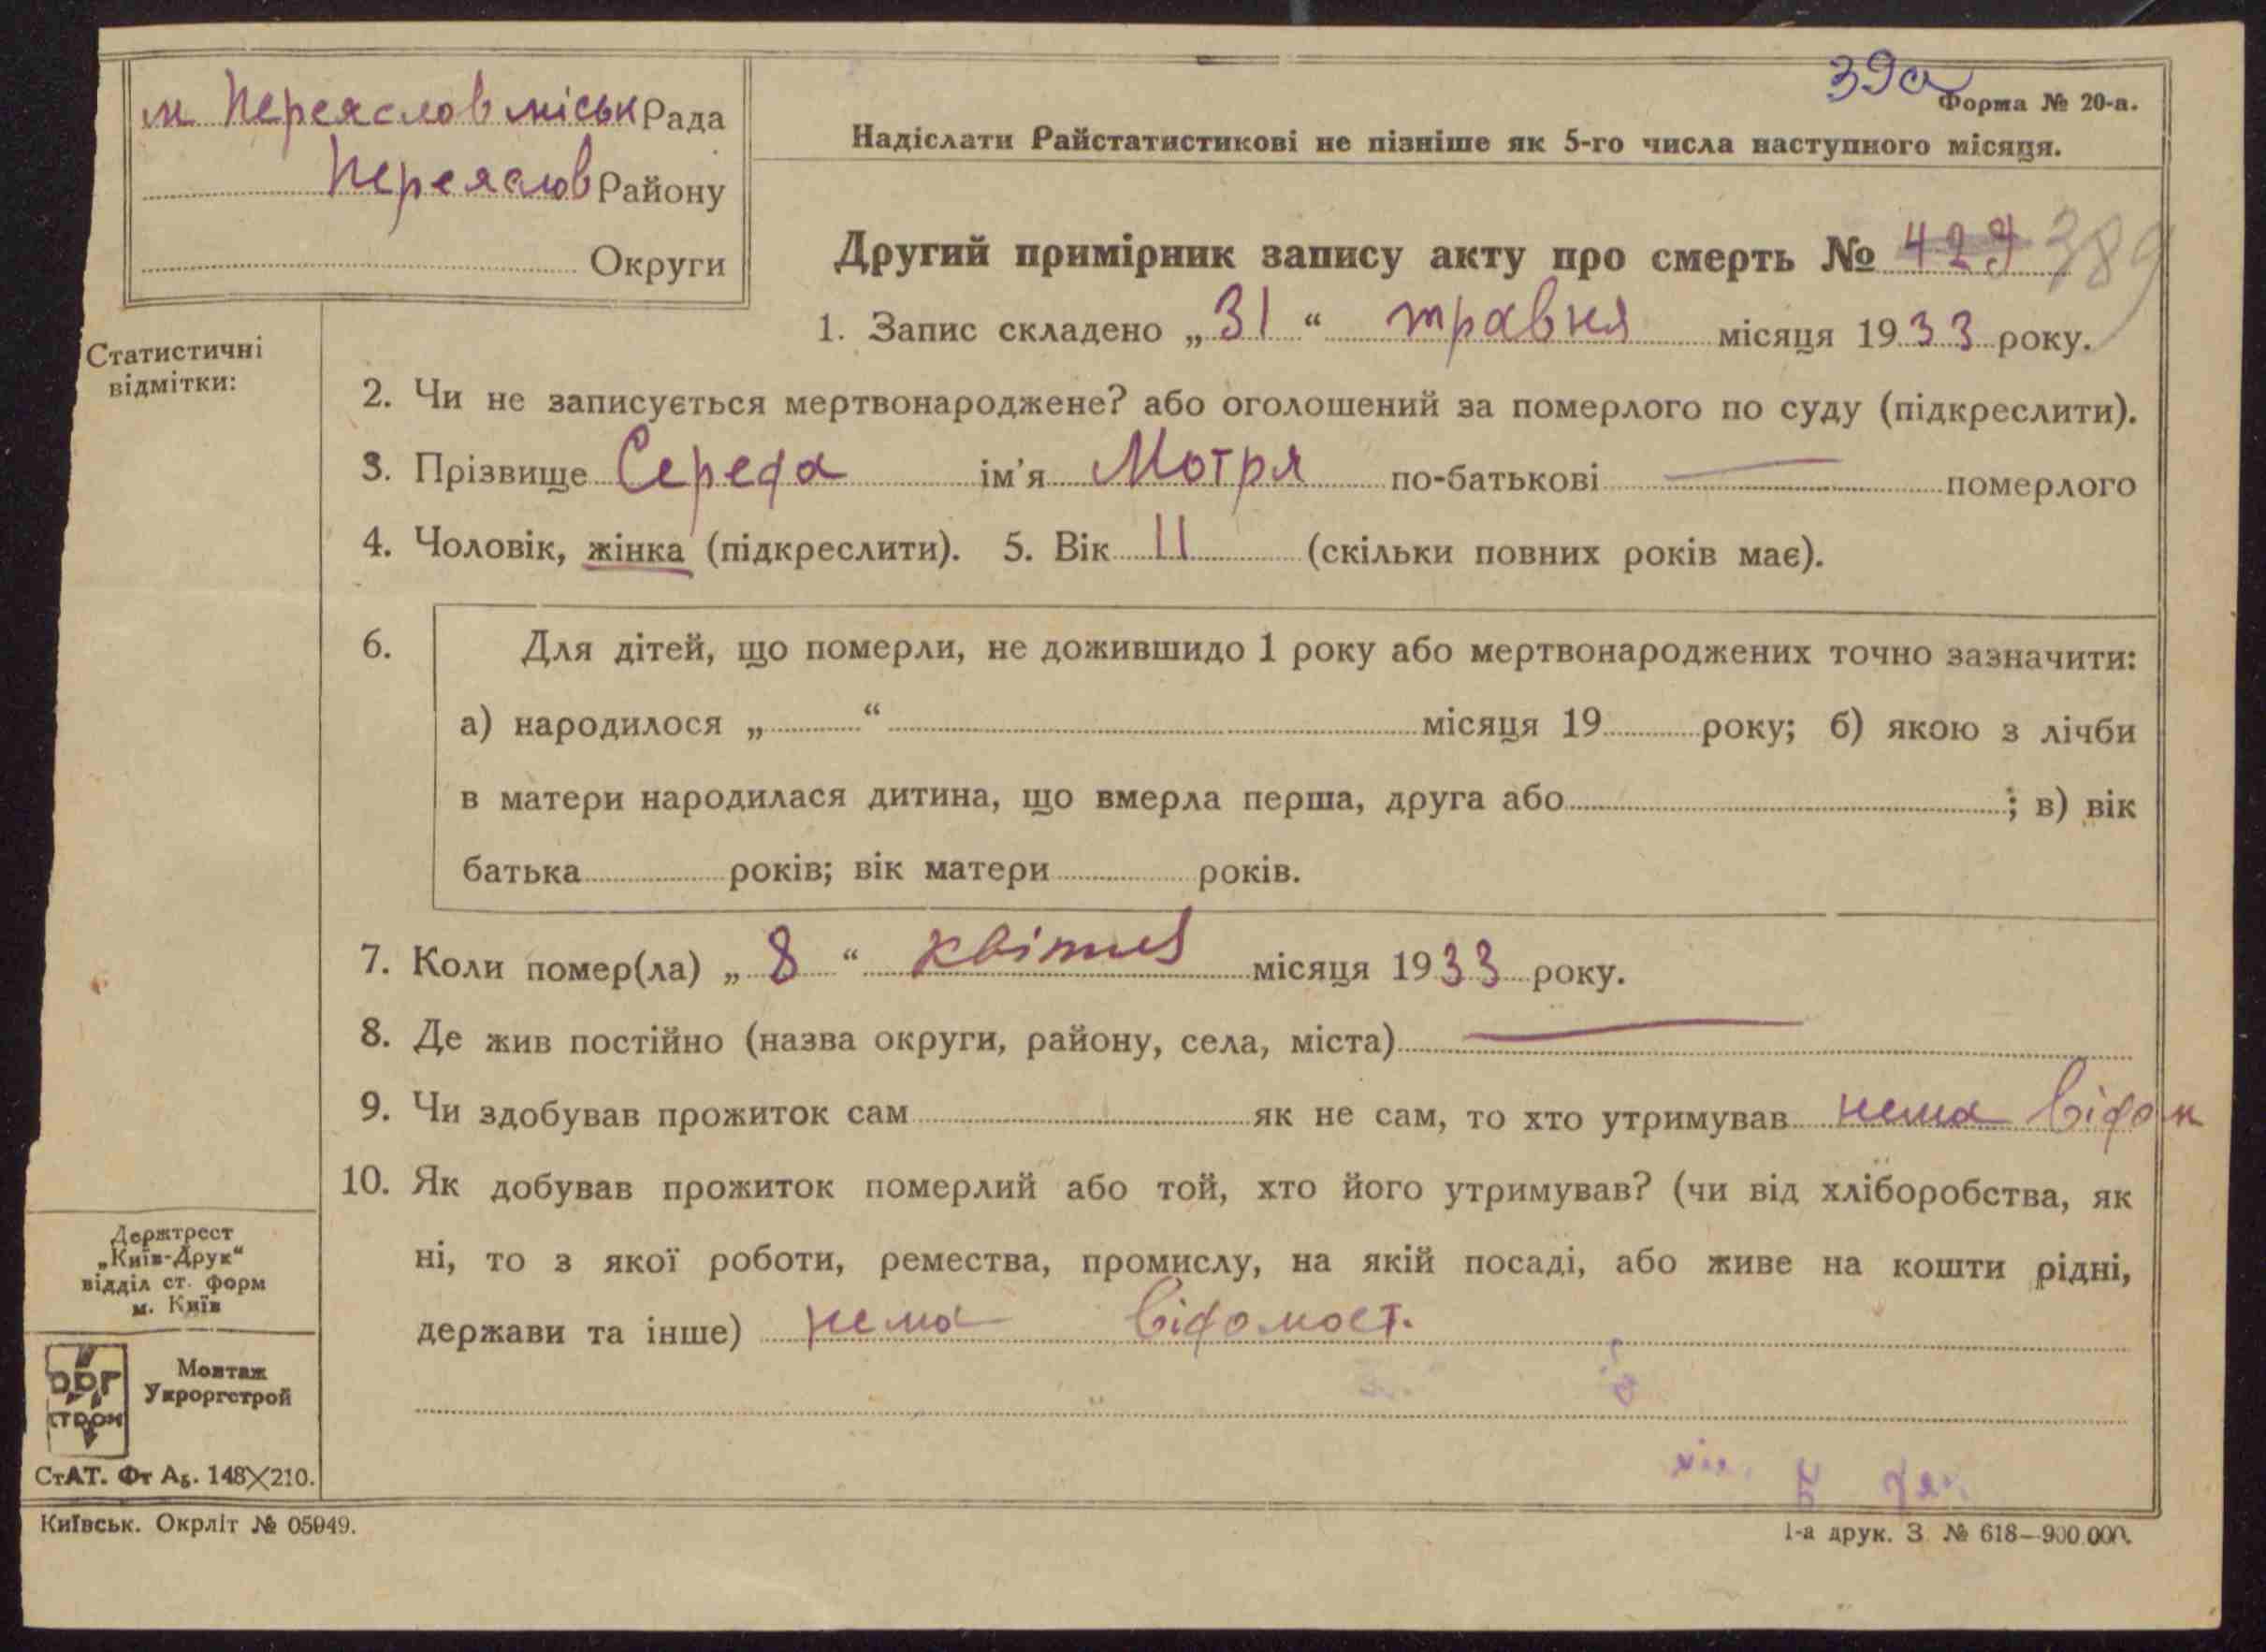 39а
Форма № 20-а.
м Переяслов міськ Рада
Надіслати Райстатистикові не пізніше як 5-го числа наступного місяця.
Переяслов Району
Округи
Другий примірник запису акту про смерть № 429 389
1. Запис складено „ 31 “ травня місяця 1933 року.
Статистичні
відмітки:
2. Чи не записується мертвонароджене? або оголошений за померлого по суду (підкреслити).
3. Прізвище Середа ім'я Мотря по-батькові — померлого
4. Чоловік, жінка (підкреслити). 5. Вік 11 (скільки повних років має).
6. Для дітей, що померли, не дожившидо 1 року або мертвонароджених точно зазначити:
а) народилося „ “ місяця 19 року; б) якою з лічби
в матери народилася дитина, що вмерла перша, друга або ; в) вік
батька років; вік матери років.
7. Коли помер(ла) „ 8 “ квітня місяця 1933 року.
8. Де жив постійно (назва округи, району, села, міста) —
9. Чи здобував прожиток сам як не сам, то хто утримував нема відом
10. Як добував прожиток померлий або той, хто його утримував? (чи від хліборобства, як
ні, то з якої роботи, ремества, промислу, на якій посаді, або живе на кошти рідні,
держави та інше) нема відомост.
Держтрест
„Київ-Друк“
відділ ст. форм
м. Київ
ОРГ
СТРОЙ
Монтаж
Укроргстрой
СтАТ. Фт А₅. 148×210.
Київськ. Окрліт № 05949.
1-а друк. З. № 618—900.000.